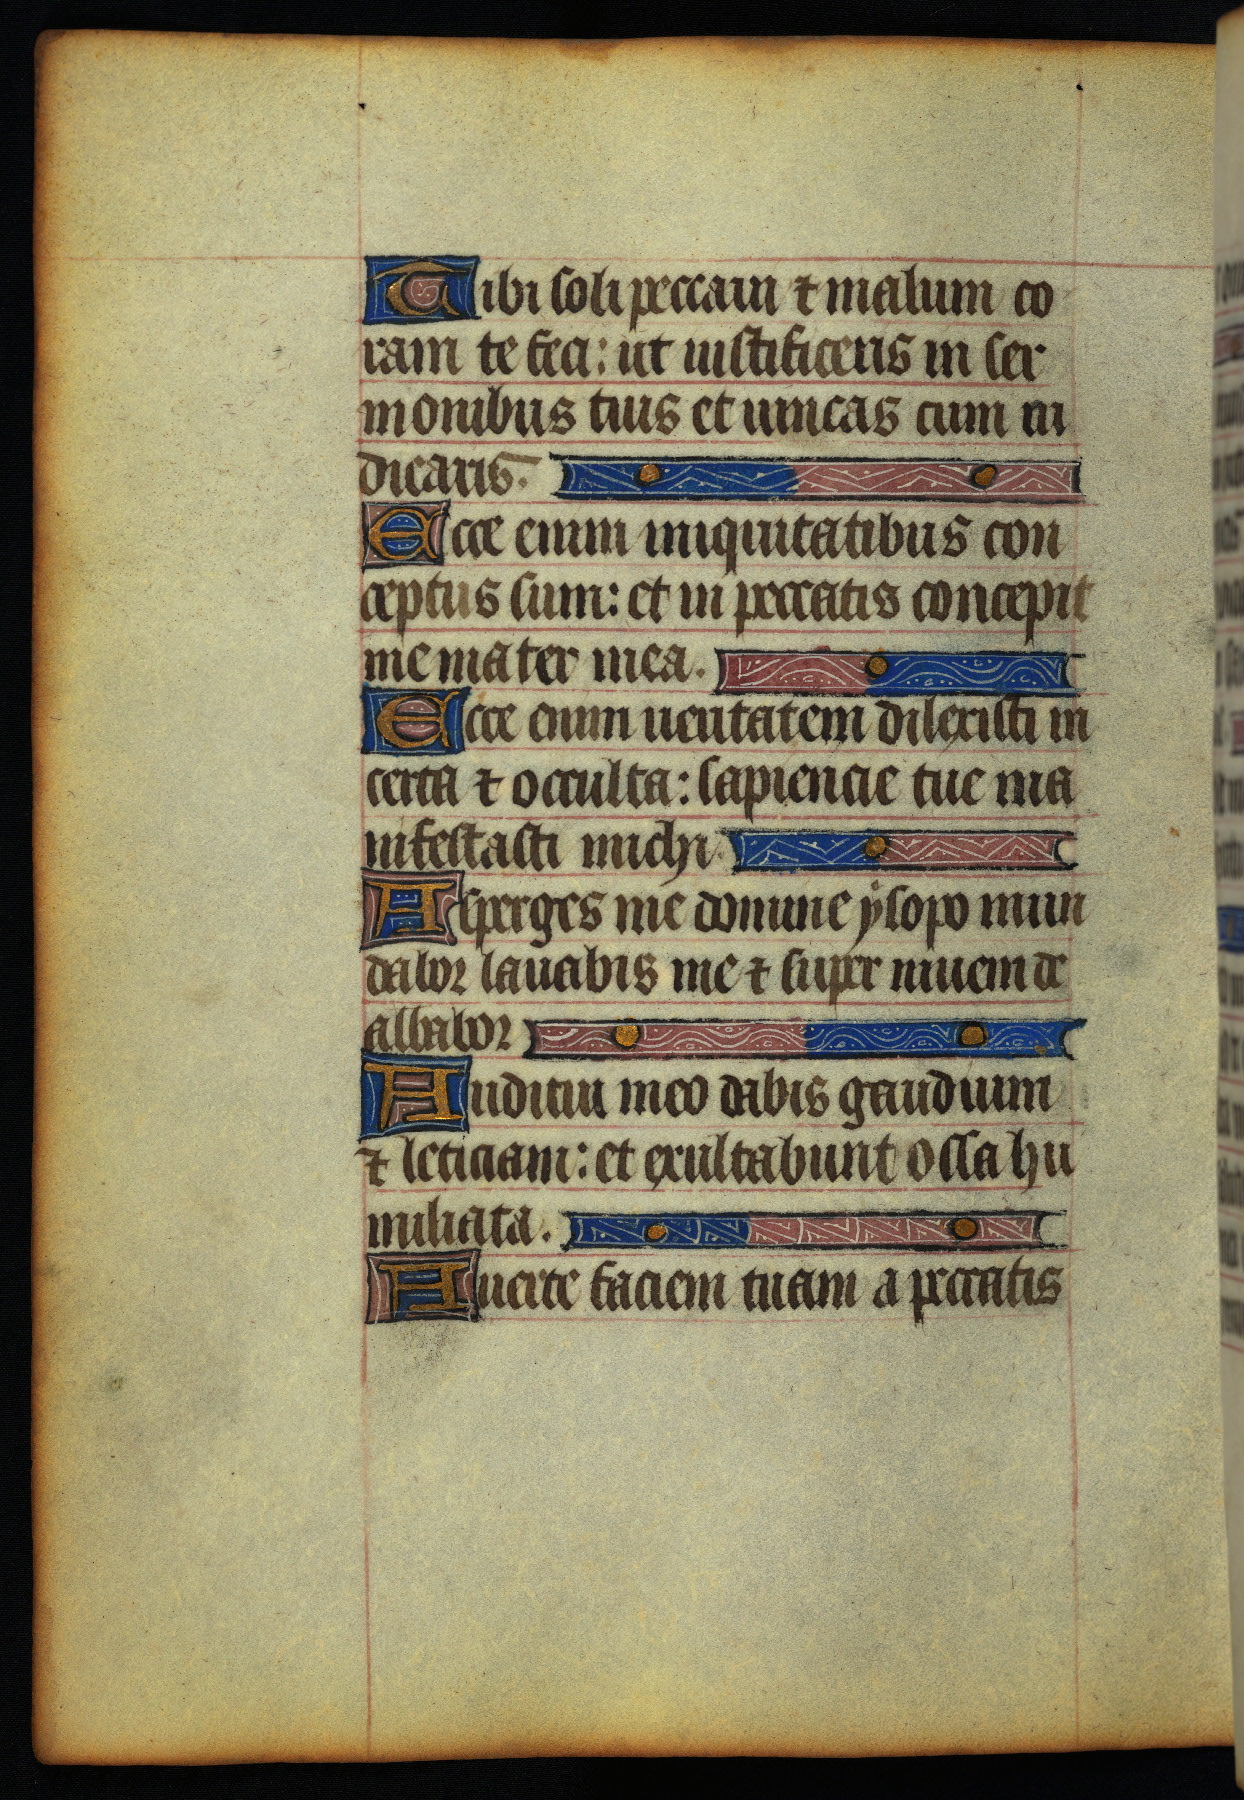 Tibi soli peccaui ⁊ malum co
ram te feci: ut iustificeris in ser
monibus tuis et uincas cum iu
dicaris.
Ecce enim iniquitatibus con
ceptus sum: et in peccatis concepit
me mater mea.
Ecce enim ueritatem dilexisti in
certa ⁊ occulta: sapiencie tue ma
nifestasti michi.
Asperges me domine ysopo mun
dabor lauabis me ⁊ super niuem de
albabor
Auditui meo dabis gaudium
⁊ leticiam: et exultabunt ossa hu
miliata.
Auerte faciem tuam a peccatis